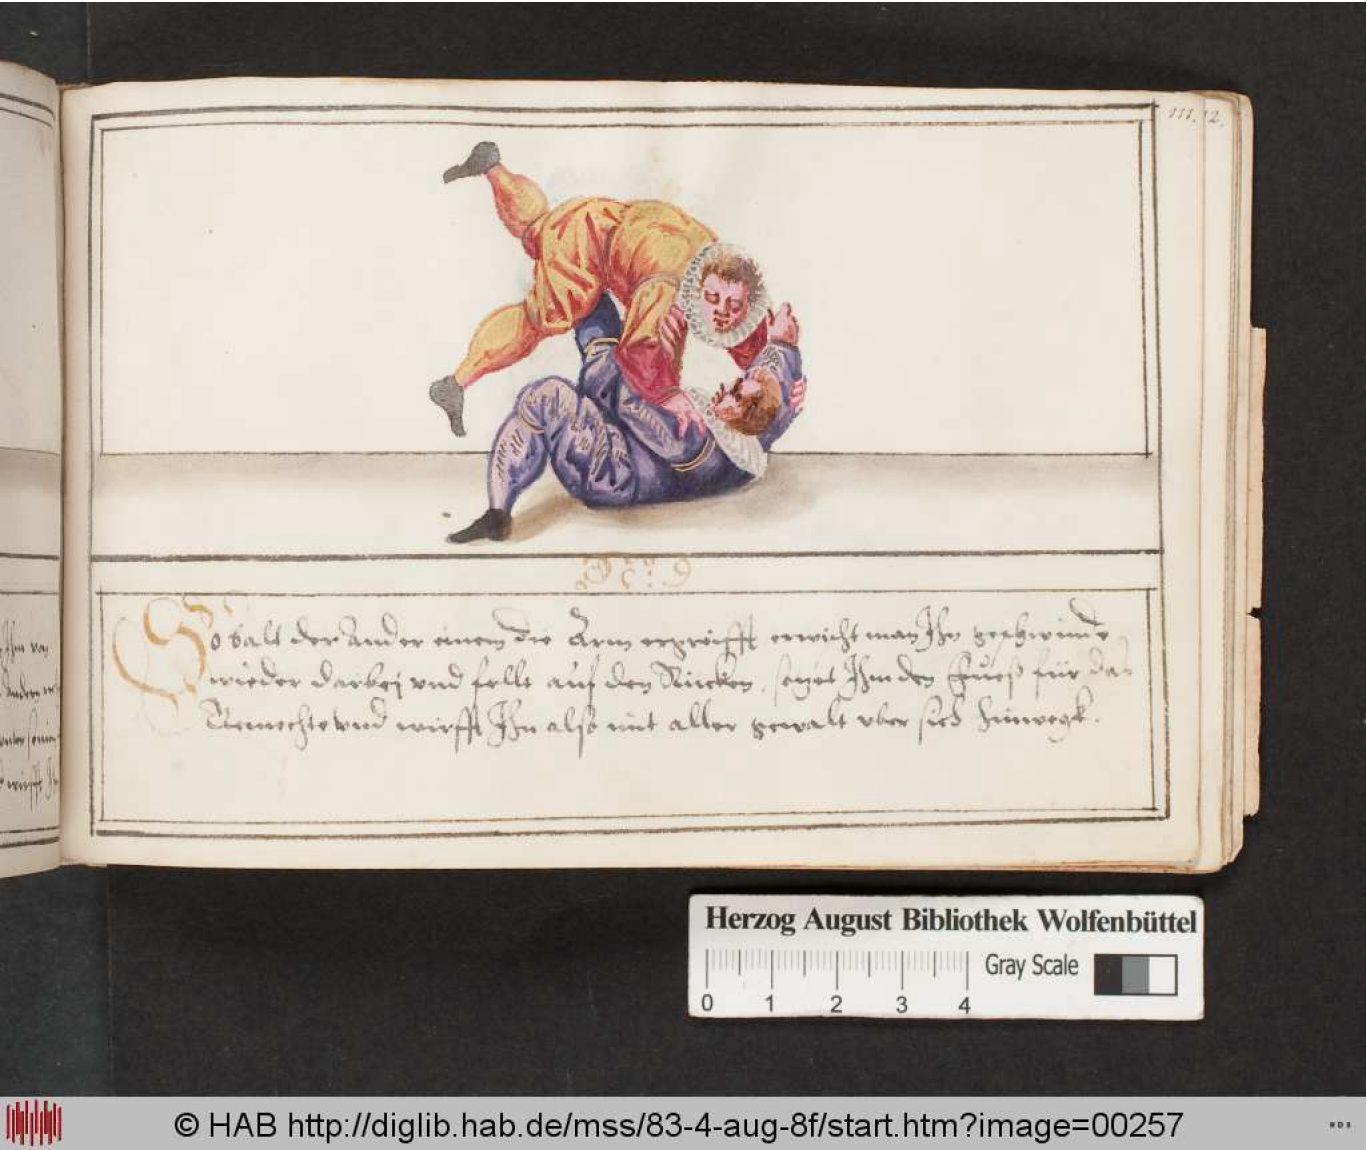 111. 12.
So balt der Ander einem die Arm ergreifft erwischt man Ihn geschwinde
wieder darbej vnd fellt auf den Rücken, setzet Ihm den Fueß für das
Gemechte vnd wirfft Ihn also mit aller gewalt vber sich hinwegk.
Ihm von
Andern
wirfft Ih
Herzog August Bibliothek Wolfenbüttel
Gray Scale
0 1 2 3 4
© HAB http://diglib.hab.de/mss/83-4-aug-8f/start.htm?image=00257